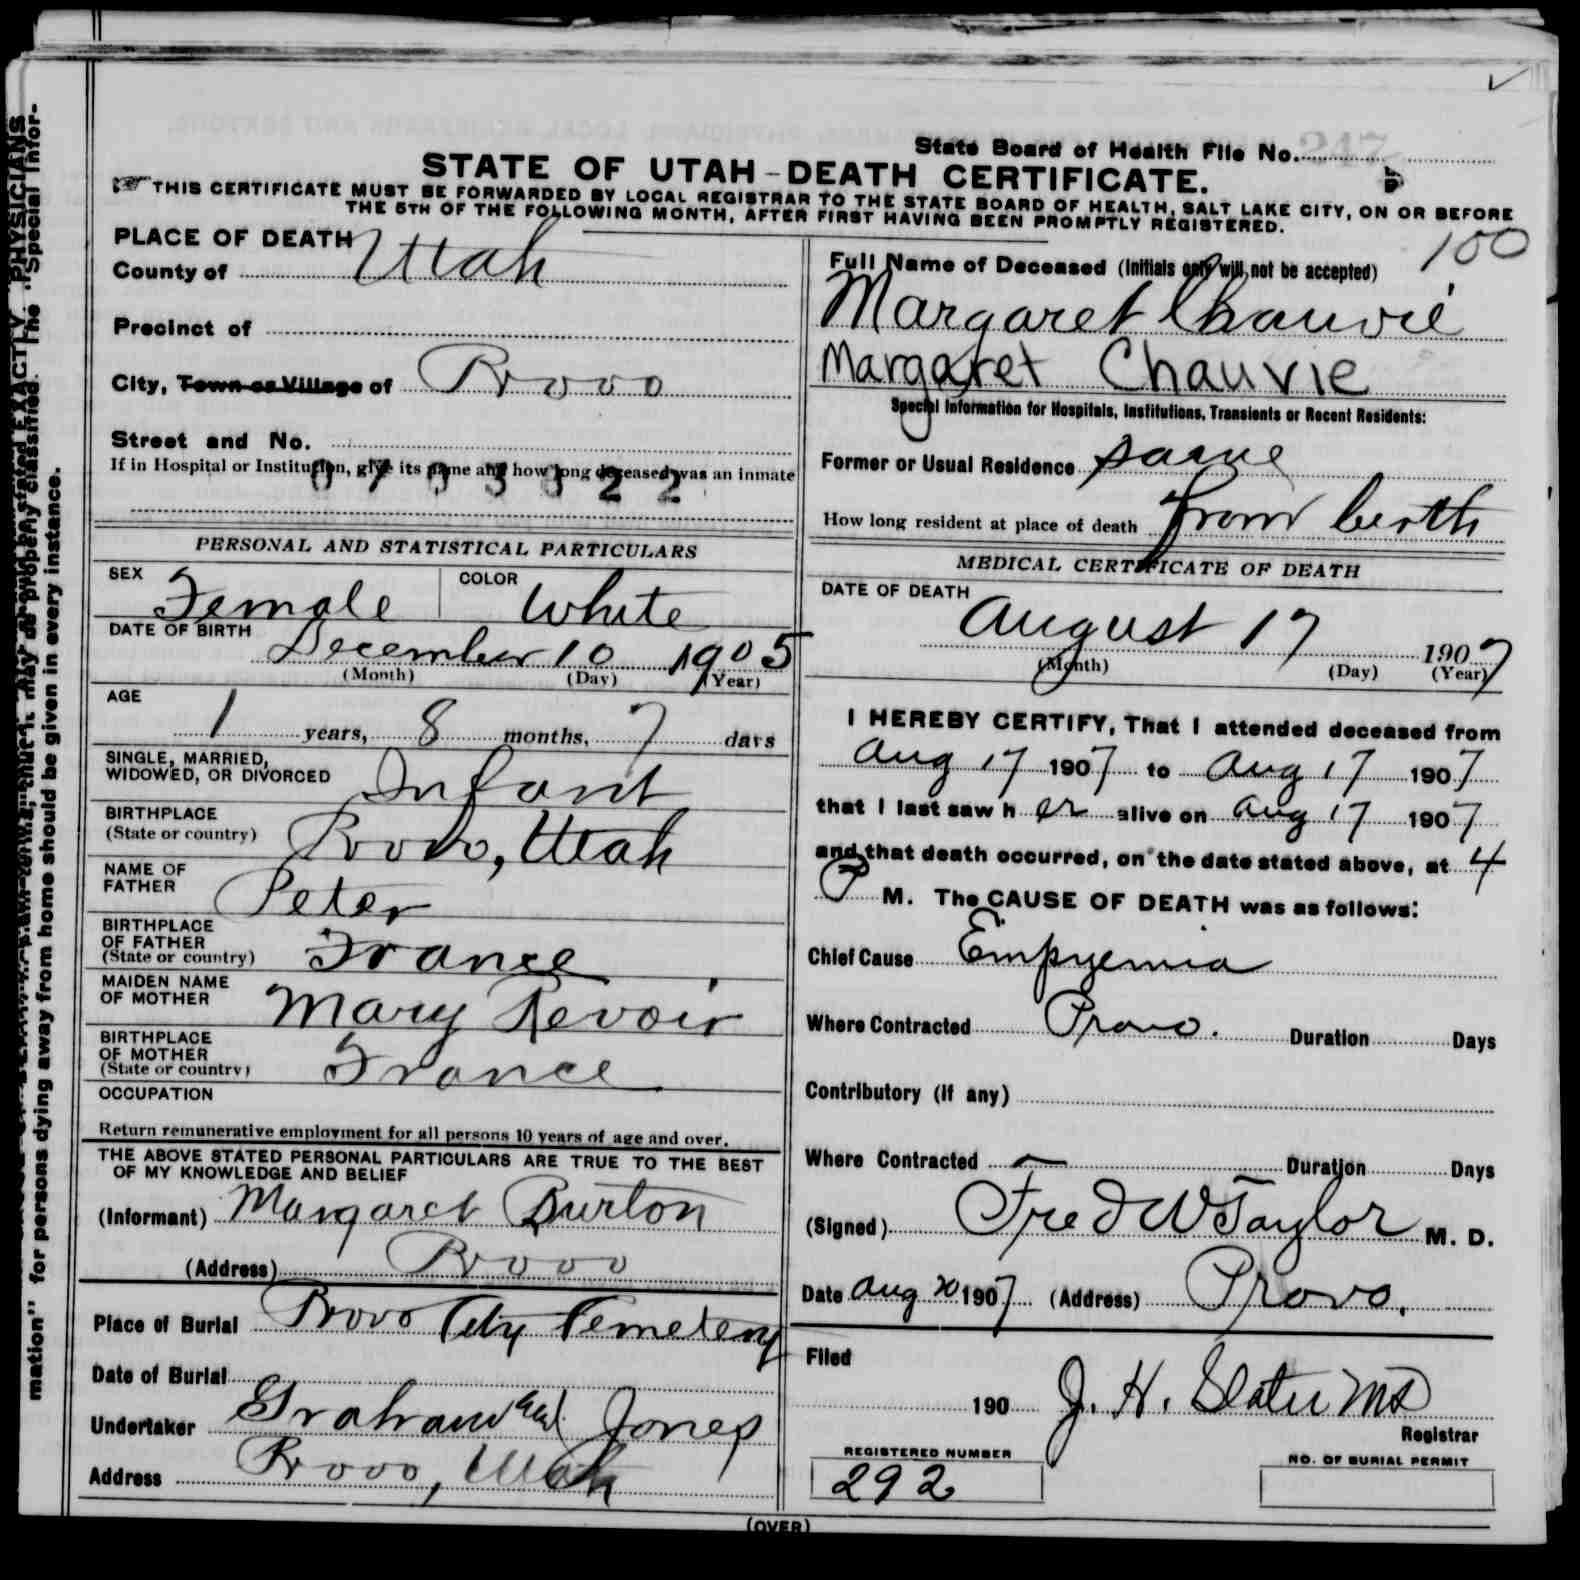 State Board of Health File No. 247
STATE OF UTAH-DEATH CERTIFICATE.
THIS CERTIFICATE MUST BE FORWARDED BY LOCAL REGISTRAR TO THE STATE BOARD OF HEALTH, SALT LAKE CITY, ON OR BEFORE
THE 5TH OF THE FOLLOWING MONTH, AFTER FIRST HAVING BEEN PROMPTLY REGISTERED.
PLACE OF DEATH
County of Utah
Precinct of
City, Town or Village of Provo
Street and No.
If in Hospital or Institution, give its name and how long deceased was an inmate
PERSONAL AND STATISTICAL PARTICULARS
SEX Female COLOR White
DATE OF BIRTH December 10 1905
(Month) (Day) (Year)
AGE
1 years, 8 months, 7 days
SINGLE, MARRIED,
WIDOWED, OR DIVORCED Infant
BIRTHPLACE
(State or country) Provo, Utah
NAME OF
FATHER Peter
BIRTHPLACE
OF FATHER
(State or country) France
MAIDEN NAME
OF MOTHER Mary Revoir
BIRTHPLACE
OF MOTHER
(State or country) France
OCCUPATION
Return remunerative employment for all persons 10 years of age and over.
THE ABOVE STATED PERSONAL PARTICULARS ARE TRUE TO THE BEST
OF MY KNOWLEDGE AND BELIEF
(Informant) Margaret Burton
(Address) Provo
Place of Burial Provo City Cemetery
Date of Burial
Undertaker Graham and Jones
Address Provo, Utah
100
Full Name of Deceased (Initials only will not be accepted)
Margaret Chauvie
Margaret Chauvie
Special Information for Hospitals, Institutions, Transients or Recent Residents:
Former or Usual Residence same
How long resident at place of death from birth
MEDICAL CERTIFICATE OF DEATH
DATE OF DEATH
August 17 1907
(Month) (Day) (Year)
I HEREBY CERTIFY, That I attended deceased from
Aug 17 1907 to Aug 17 1907
that I last saw her alive on Aug 17 1907
and that death occurred, on the date stated above, at 4
P M. The CAUSE OF DEATH was as follows:
Chief Cause Empyemia
Where Contracted Provo. Duration Days
Contributory (if any)
Where Contracted Duration Days
(Signed) Fred W Taylor M. D.
Date Aug 20 1907 (Address) Provo.
Filed
190 J. H. Slater MD
Registrar
REGISTERED NUMBER
292
NO. OF BURIAL PERMIT
(OVER)
mation" for persons dying away from home should be given in every instance.